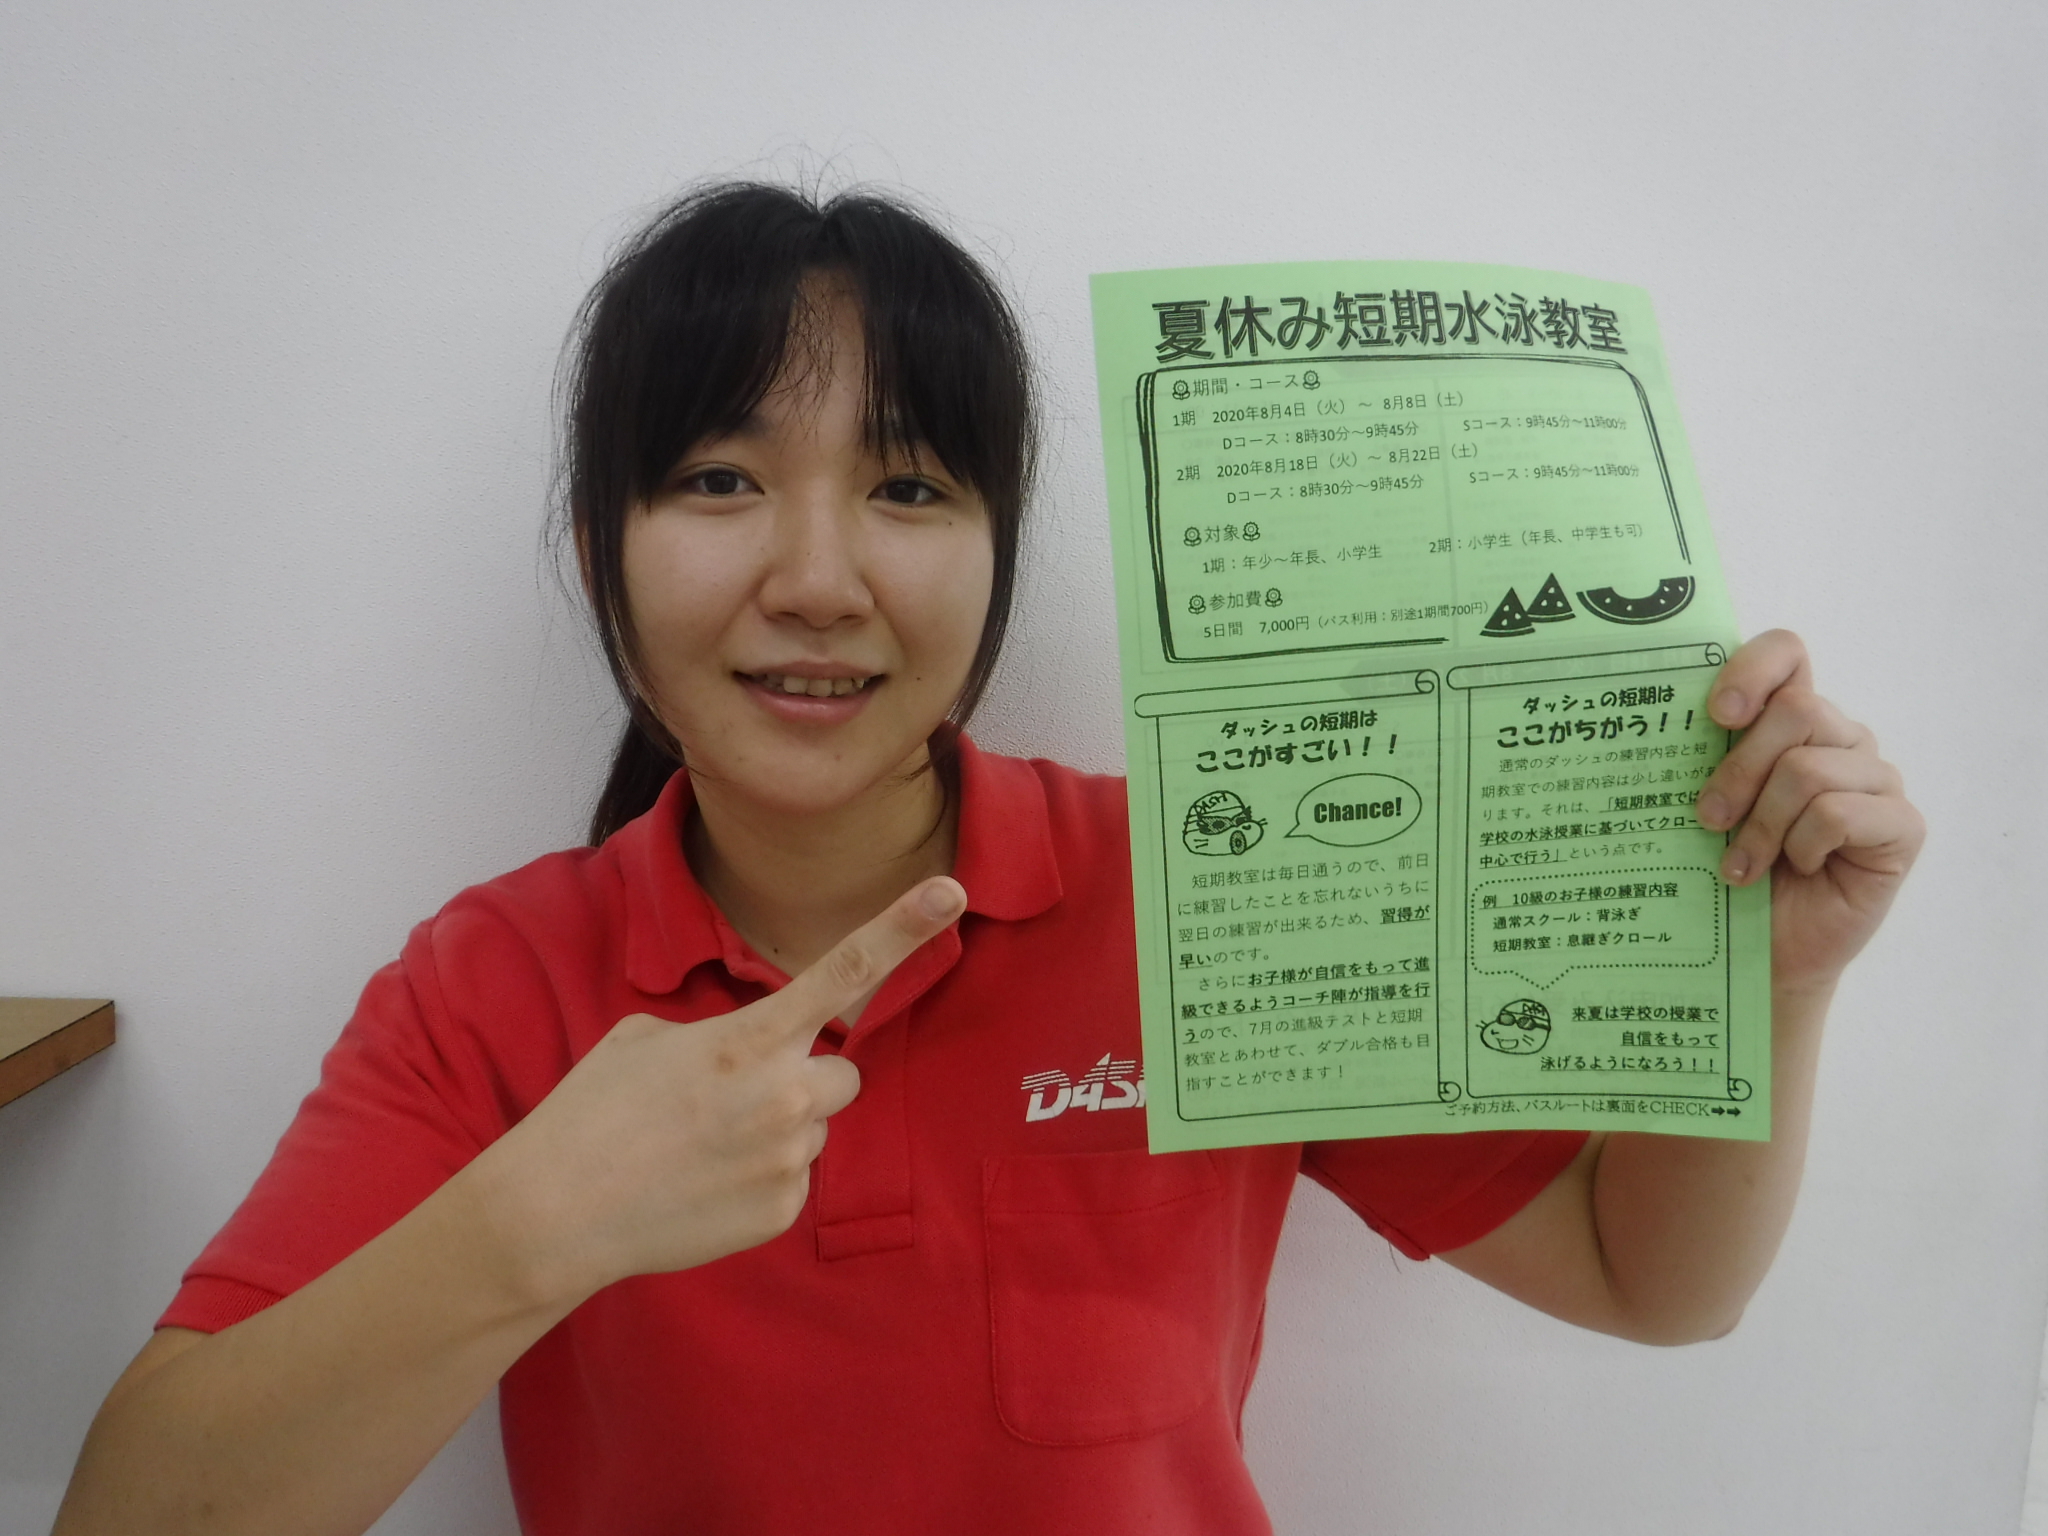 夏休み短期水泳教室
期間・コース
1期 2020年8月4日（火）～ 8月8日（土）
Dコース：8時30分～9時45分 Sコース：9時45分～11時00分
2期 2020年8月18日（火）～ 8月22日（土）
Dコース：8時30分～9時45分 Sコース：9時45分～11時00分
対象
1期：年少～年長、小学生 2期：小学生（年長、中学生も可）
参加費
5日間 7,000円（バス利用：別途1期間700円）
ダッシュの短期は
ここがすごい！！
DASH
Chance!
短期教室は毎日通うので、前日
に練習したことを忘れないうちに
翌日の練習が出来るため、習得が
早いのです。
さらにお子様が自信をもって進
級できるようコーチ陣が指導を行
うので、7月の進級テストと短期
教室とあわせて、ダブル合格も目
指すことができます！
ダッシュの短期は
ここがちがう！！
通常のダッシュの練習内容と短
期教室での練習内容は少し違いがあ
ります。それは、「短期教室では
学校の水泳授業に基づいてクロー
中心で行う」という点です。
例 10級のお子様の練習内容
通常スクール：背泳ぎ
短期教室：息継ぎクロール
来夏は学校の授業で
自信をもって
泳げるようになろう！！
ご予約方法、バスルートは裏面をCHECK➡➡
DAS